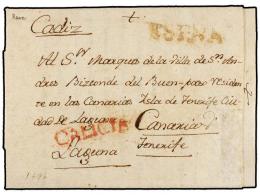 Cadiz
ESPAÑA
Al Sr. Marques de la Villa de Sn. An-
dres Bizconde del Buen-paso residen
te en las Canarias Isla de Tenerife Ciu-
dad de Laguna
Canarias
GALICIA
Laguna
Tenerife